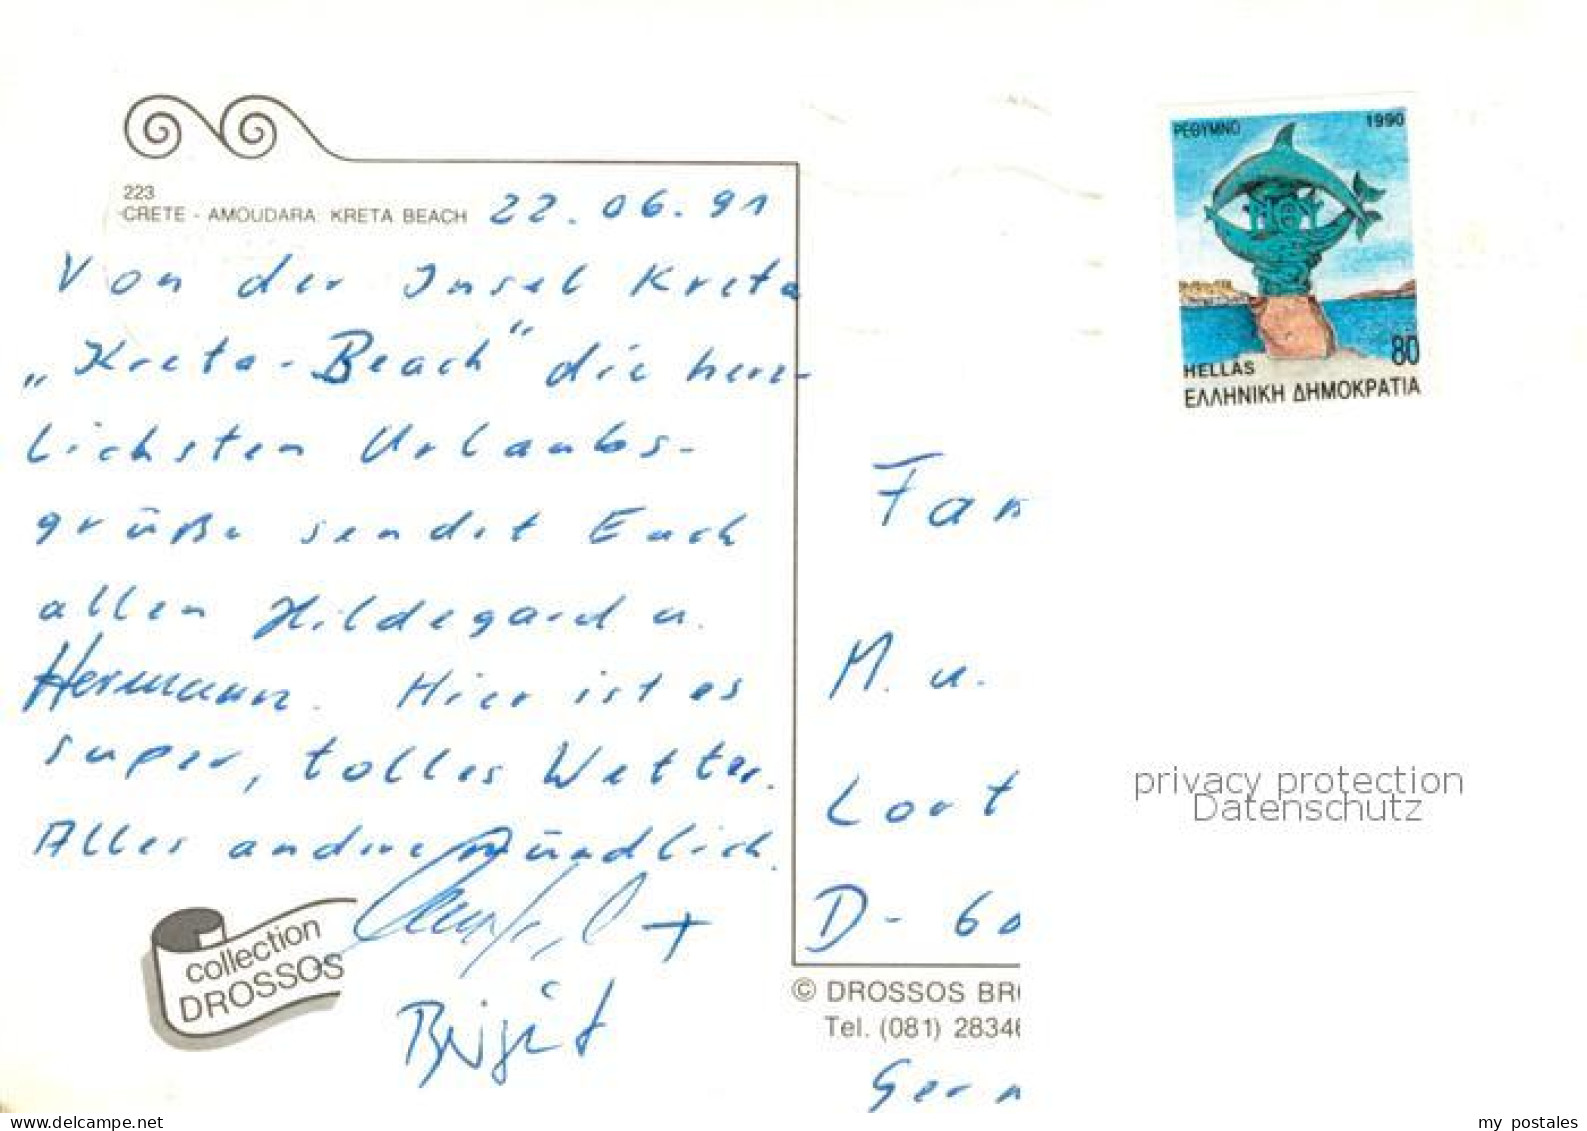 ΡΕΘΥΜΝΟ 1990
80
HELLAS
ΕΛΛΗΝΙΚΗ ΔΗΜΟΚΡΑΤΙΑ
223
CRETE - AMOUDARA KRETA BEACH 22.06.91
Von der Insel Kreta
„Kreta-Beach" die herz-
lichsten Urlaubs-
grüße sendet Euch
allen Hildegard u.
Hermann. Hier ist es
super, tolles Wetter.
Alles andere mündlich.
+
Birgit
collection
DROSSOS
Fam
M. u.
Lort
D- 60
© DROSSOS BR
Tel. (081) 28346
Ger
privacy protection
Datenschutz
www.delcampe.net
my_postales